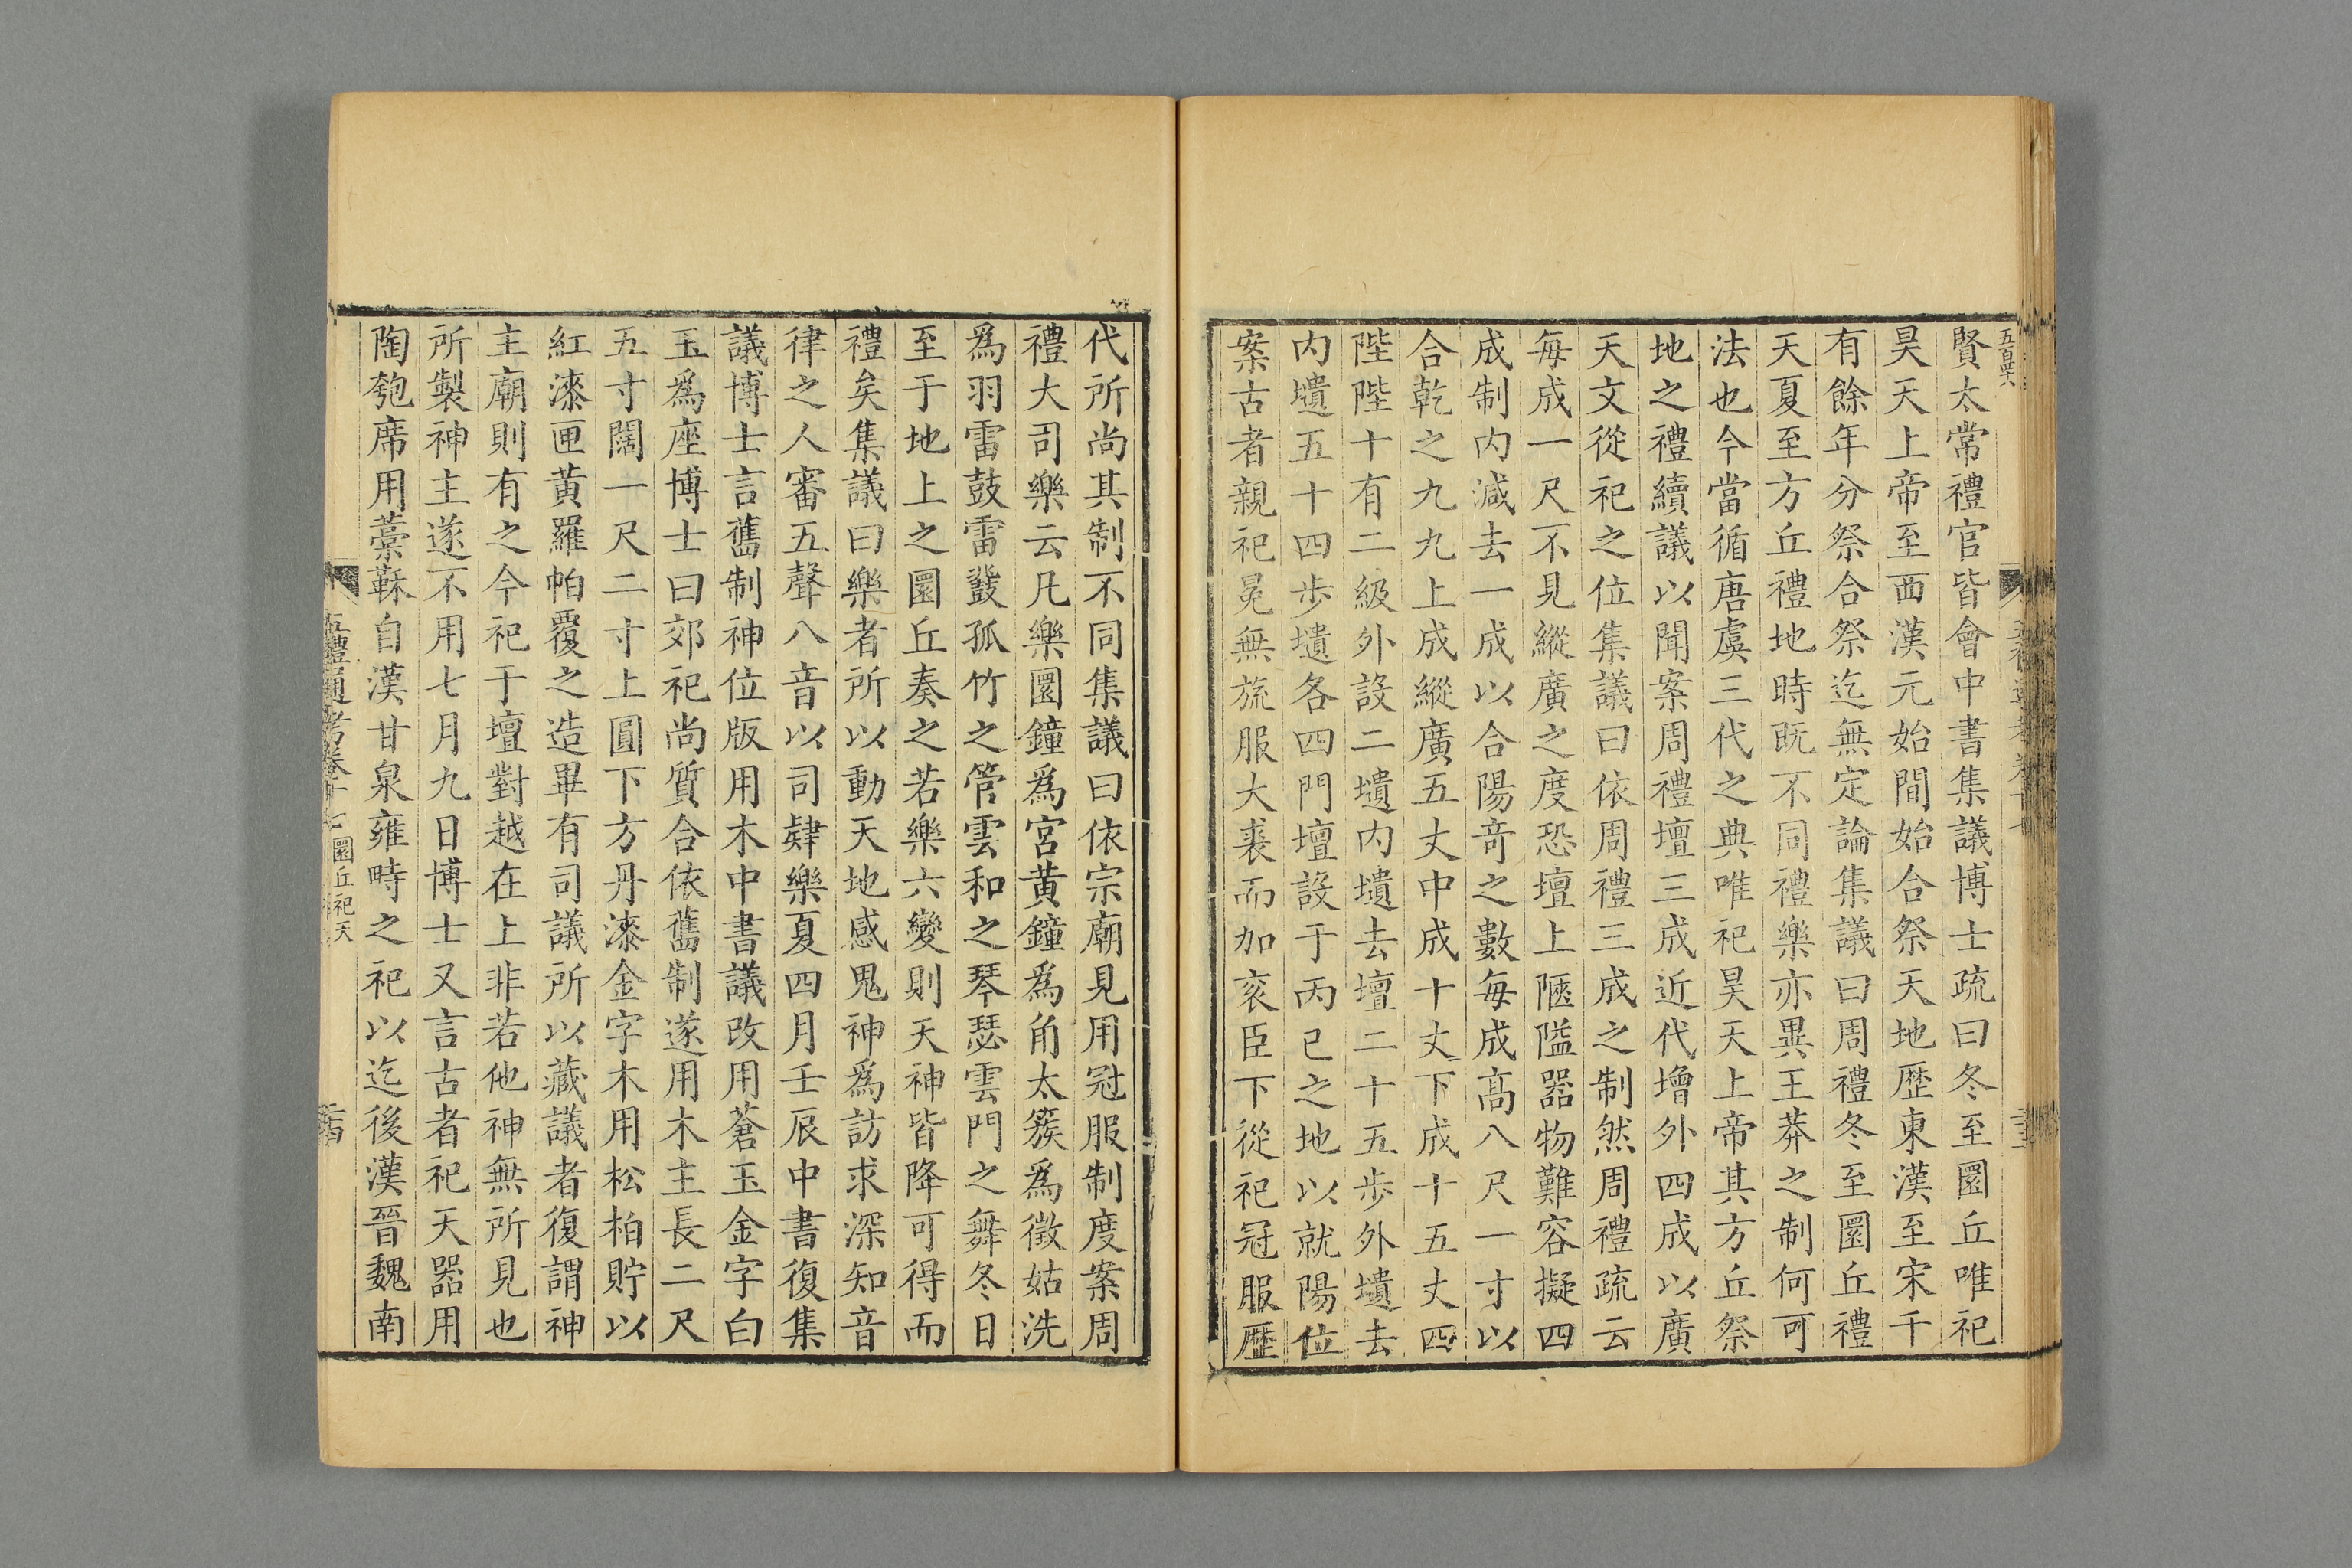 五百四十六
賢太常禮官皆會中書集議博士疏曰冬至圜丘唯祀
昊天上帝至西漢元始間始合祭天地歴東漢至宋千
有餘年分祭合祭迄無定論集議曰周禮冬至圜丘禮
天夏至方丘禮地時既不同禮樂亦異王莽之制何可
法也今當循唐虞三代之典唯祀昊天上帝其方丘祭
地之禮續議以聞案周禮壇三成近代增外四成以廣
天文從祀之位集議曰依周禮三成之制然周禮疏云
每成一尺不見縱廣之度恐壇上陿隘器物難容擬四
成制内減去一成以合陽竒之數每成高八尺一寸以
合乾之九九上成縱廣五丈中成十丈下成十五丈四
陛陛十有二級外設二壝内壝去壇二十五步外壝去
内壝五十四步壝各四門壇設于丙巳之地以就陽位
案古者親祀冕無旒服大裘而加衮臣下從祀冠服歴
代所尚其制不同集議曰依宗廟見用冠服制度案周
禮大司樂云凡樂圜鐘爲宮黄鐘爲角太簇爲徵姑洗
爲羽雷鼓雷鼗孤竹之管雲和之琴瑟雲門之舞冬日
至于地上之圜丘奏之若樂六變則天神皆降可得而
禮矣集議曰樂者所以動天地感鬼神爲訪求深知音
律之人審五聲八音以司肄樂夏四月壬辰中書復集
議博士言舊制神位版用木中書議改用蒼玉金字白
玉爲座博士曰郊祀尚質合依舊制遂用木主長二尺
五寸闊一尺二寸上圓下方丹漆金字木用松柏貯以
紅漆匣黄羅帕覆之造畢有司議所以藏議者復謂神
主廟則有之今祀于壇對越在上非若他神無所見也
所製神主遂不用七月九日博士又言古者祀天器用
陶匏席用藁鞂自漢甘泉雍畤之祀以迄後漢晉魏南
五禮通考卷十七 圜丘祀天